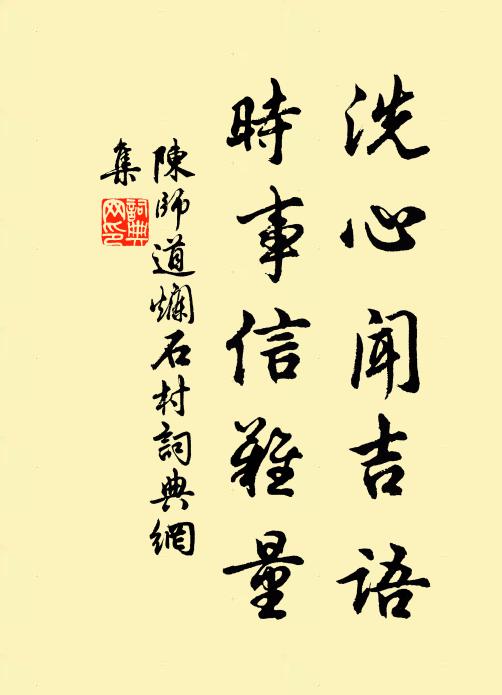 洗心聞吉語
時事信難量
陳師道爛石村詞典網
集
詞典
网印